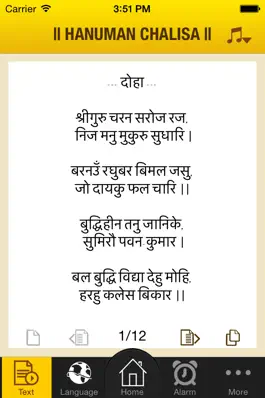 Carrier 3:51 PM
॥ HANUMAN CHALISA ॥
... दोहा ...
श्रीगुरु चरन सरोज रज.
निज मनु मुकुरु सुधारि ।
बरनउँ रघुबर बिमल जसु.
जो दायकु फल चारि ।।
बुद्धिहीन तनु जानिके.
सुमिरौ पवन कुमार ।
बल बुद्धि विद्या देहु मोहि.
हरहु कलेस बिकार ।।
1/12
Text Language Home Alarm More